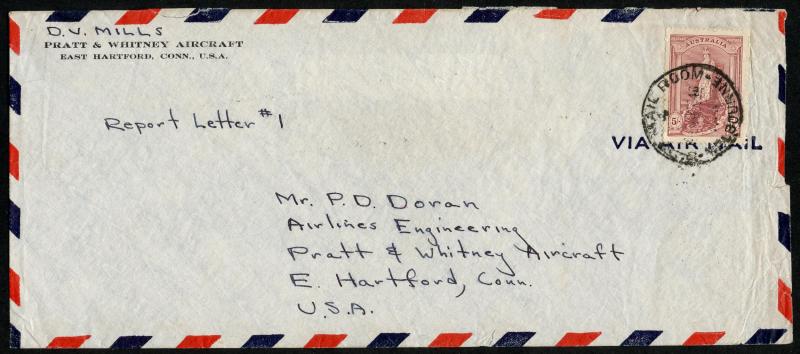 D.V. MILLS
PRATT & WHITNEY AIRCRAFT
EAST HARTFORD, CONN., U.S.A.
AUSTRALIA
5/-
MAIL ROOM
MELBOURNE
Report Letter #1
VIA AIR MAIL
Mr. P.D. Doran
Airlines Engineering
Pratt & Whitney Aircraft
E. Hartford, Conn.
U.S.A.